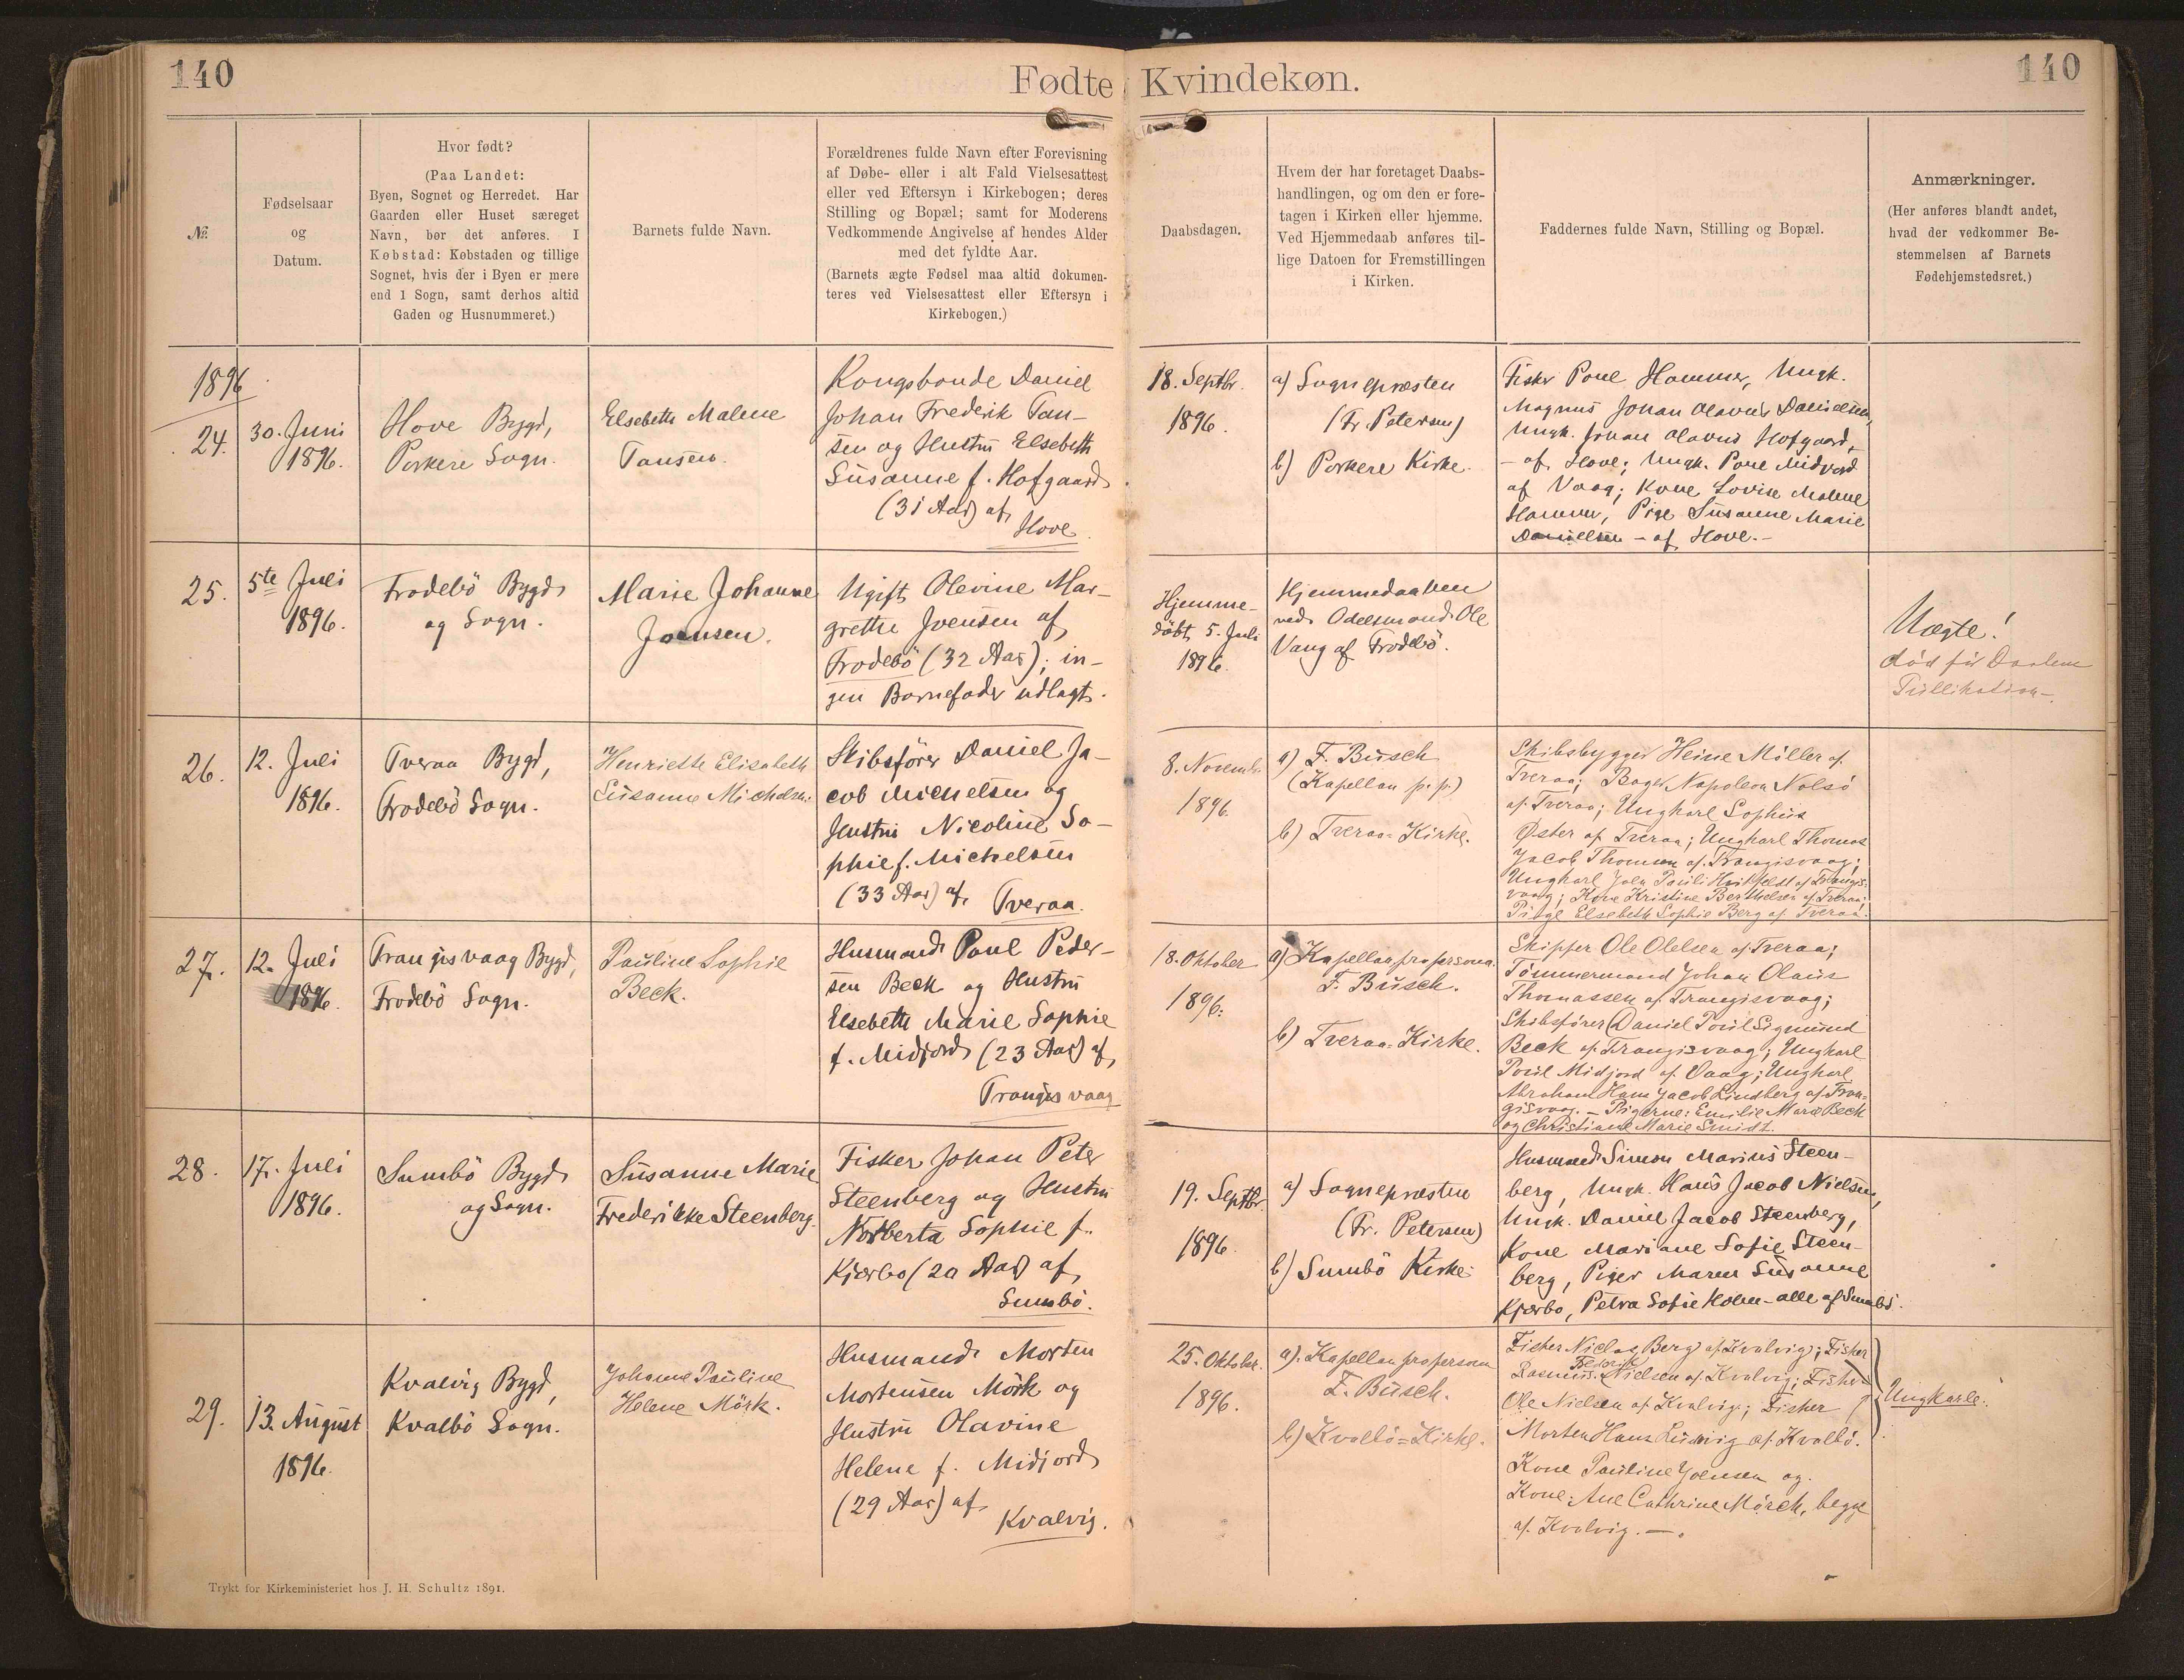 140
Fødte Kvindekøn.
140
№
Fødselsaar
og
Datum.
Hvor født?
(Paa Landet:
Byen, Sognet og Herredet. Har
Gaarden eller Huset særeget
Navn, bør det anføres. I
Købstad: Købstaden og tillige
Sognet, hvis der i Byen er mere
end 1 Sogn, samt derhos altid
Gaden og Husnummeret.)
Barnets fulde Navn.
Forældrenes fulde Navn efter Forevisning
af Døbe- eller i alt Fald Vielsesattest
eller ved Eftersyn i Kirkebogen; deres
Stilling og Bopæl; samt for Moderens
Vedkommende Angivelse af hendes Alder
med det fyldte Aar.
(Barnets ægte Fødsel maa altid dokumen-
teres ved Vielsesattest eller Eftersyn i
Kirkebogen.)
Daabsdagen.
Hvem der har foretaget Daabs-
handlingen, og om den er fore-
tagen i Kirken eller hjemme.
Ved Hjemmedaab anføres til-
lige Datoen for Fremstillingen
i Kirken.
Faddernes fulde Navn, Stilling og Bopæl.
Anmærkninger.
(Her anføres blandt andet,
hvad der vedkommer Be-
stemmelsen af Barnets
Fødehjemstedsret.)
1896
24.
30. Juni
1896.
Hove Bygd,
Porkere Sogn.
Elsebeth Malene
Tausen.
Kongsbonde Daniel
Johan Frederik Tau-
sen og Hustru Elsebeth
Susanne f. Hofgaard
(31 Aar) af
Hove.
18. Septbr.
1896.
a) Sognepræsten
(Fr. Petersen)
b) Porkere Kirke.
Fisker Poul Hammer, Ungk.
Magnus Johan Olavus Danielsen,
Ungk. Johan Olavus Hofgaard,
- af Hove; Ungk. Poul Midjord
af Vaag; Kone Lovise Malene
Hammer, Pige Susanne Marie
Danielsen - af Hove.-
25.
5te Juli
1896.
Frodebö Bygd
og Sogn.
Marie Johanne
Joensen.
Ugift Olevine Mar-
grethe Joensen af
Frodebö (32 Aar); in-
gen Barnefader udlagt.
Hjemme-
döbt 5. Juli
1896.
Hjemmedaaben
ved Odelsmand Ole
Vang af Frodebö.
Uægte!
död för Daabens
Publikation-.
26.
12. Juli
1896.
Tveraa Bygd,
Frodebö Sogn.
Henriette Elisabeth
Susanne Michelsen.
Skibsförer Daniel Ja-
cob Michelsen og
Hustru Nicoline So-
phie f. Michelsen
(33 Aar) af Tveraa.
8. Novemb.
1896.
a) F. Busch
(Kapellan p. p.)
b) Tveraa-Kirke.
Skibsbygger Heine Möller af
Tveraa; Bager Napoleon Nolsö
af Tveraa; Ungkarl Sophus
Øster af Tveraa; Ungkarl Thomas
Jacob Thomsen af Trangisvaag;
Ungkarl Joen Pauli Hvitfeldt af Trangis-
vaag; Kone Kristine Berthelsen af Tveraa;
Pige Elsebeth Sophie Berg af Tveraa.
27.
12. Juli
1896.
Trangisvaag Bygd,
Frodebö Sogn.
Pauline Sophie
Beck.
Husmand Poul Peder-
sen Beck og Hustru
Elsebeth Marie Sophie
f. Midjord (23 Aar) af
Trangisvaag
18. Oktober
1896.
a) Kapellan pro persona
F. Busch.
b) Tveraa-Kirke.
Skipper Ole Olelsen af Tveraa;
Tömmermand Johan Olaus
Thomassen af Trangisvaag;
Skibsförer Daniel Poul Sigmund
Beck af Trangisvaag; Ungkarl
Poul Midjord af Vaag; Ungkarl
Abraham Hans Jacob Lindberg af Tran-
gisvaag. - Pigerne: Emilie Marie Beck
og Christiane Marie Smidt.
28.
17. Juli
1896.
Sumbö Bygd
og Sogn.
Susanne Marie
Frederikke Steenberg.
Fisker Johan Peter
Steenberg og Hustru
Norberta Sophie f.
Kjærbo (20 Aar) af
Sumbö.
19. Septbr.
1896.
a) Sognepræsten
(Fr. Petersen)
b) Sumbö Kirke.
Husmand Simon Marius Steen-
berg, Ungk. Hans Jacob Nielsen,
Ungk. Daniel Jacob Steenberg,
Kone Mariane Sofie Steen-
berg, Piger Maren Susanne
Kjærbo, Petra Sofie Holm - alle af Sumbö.
29.
13. August
1896.
Kvalvig Bygd,
Kvalbö Sogn.
Johanne Pauline
Helene Mörk.
Husmand Morten
Mortensen Mörk og
Hustru Olavine
Helene f. Midjord
(29 Aar) af
Kvalvig.
25. Oktober.
1896.
a). Kapellan pro persona
F. Busch.
b) Kvalbö-Kirke.
Fisker Niclas Berg af Kvalvig; Fisker
Rasmus Nielsen af Kvalvig; Fisker
Ole Nielsen af Kvalvig; Fisker
Morten Hans Ludvig af Kvalbö.
Kone Pauline Joensen og
Kone Ane Cathrine Mörck, begge
af Kvalvig.-.
Ungkarle.
Trykt for Kirkeministeriet hos J. H. Schultz 1891.